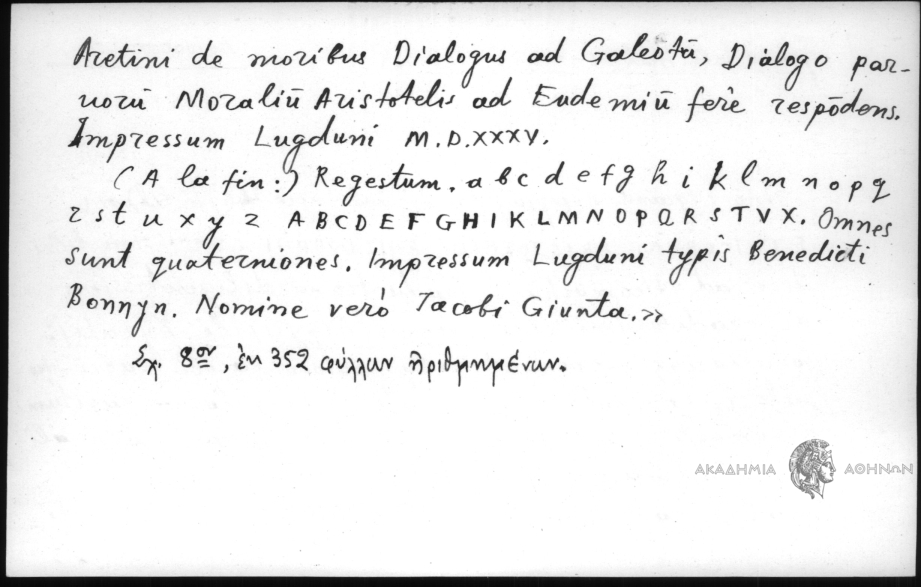 Aretini de moribus Dialogus ad Galeotū, Dialogo par-
uorū Moraliū Aristotelis ad Eudemiū ferè respōdens.
Impressum Lugduni M.D.XXXV.
(A la fin:) Regestum. a b c d e f g h i k l m n o p q
r s t u x y z A B C D E F G H I K L M N O P Q R S T V X. Omnes
sunt quaterniones. Impressum Lugduni typis Benedicti
Bonnyn. Nomine verò Iacobi Giunta.»
Σχ. 8ον, ἐκ 352 φύλλων ἠριθμημένων.
ΑΚΑΔΗΜΙΑ ΑΘΗΝΩΝ